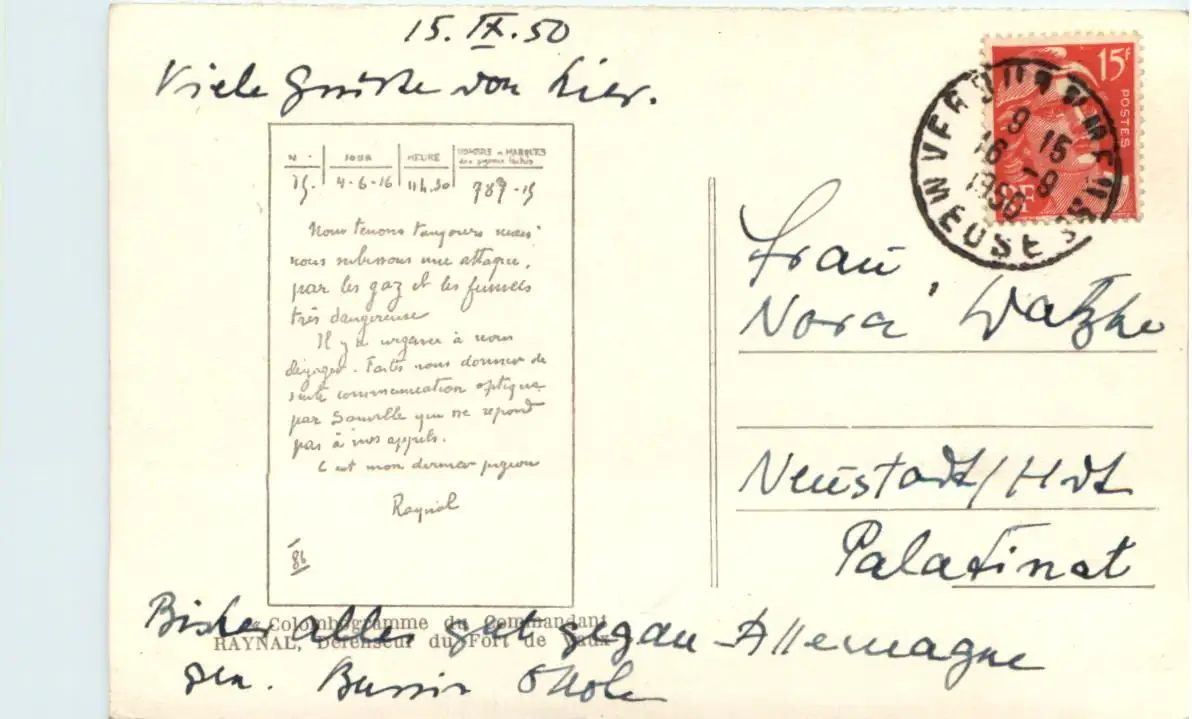 15. IX. 50
Viele Grüße von hier.
N° JOUR HEURE NOMBRE et MARQUES
des pigeons lachés
4-6-16 11H.30 787-15
Nous tenons toujours mais
nous subissons une attaque,
par les gaz et les fumées
très dangereuse
Il y a urgence à nous
dégager. Faites nous donner de
suite communication optique
par Souville qui ne repond
pas à nos appels.
C est mon dernier pigeon
Raynal
86
« Colombogramme du Commandant
RAYNAL, Défenseur du Fort de Vaux
15F
POSTES
RF
VERDUN
MEUSE
9 15
16 -9
1950
Frau
Nora Watzke
Neustadt/Hdt
Palatinat
Allemagne
Bisher alles gut gegangen.